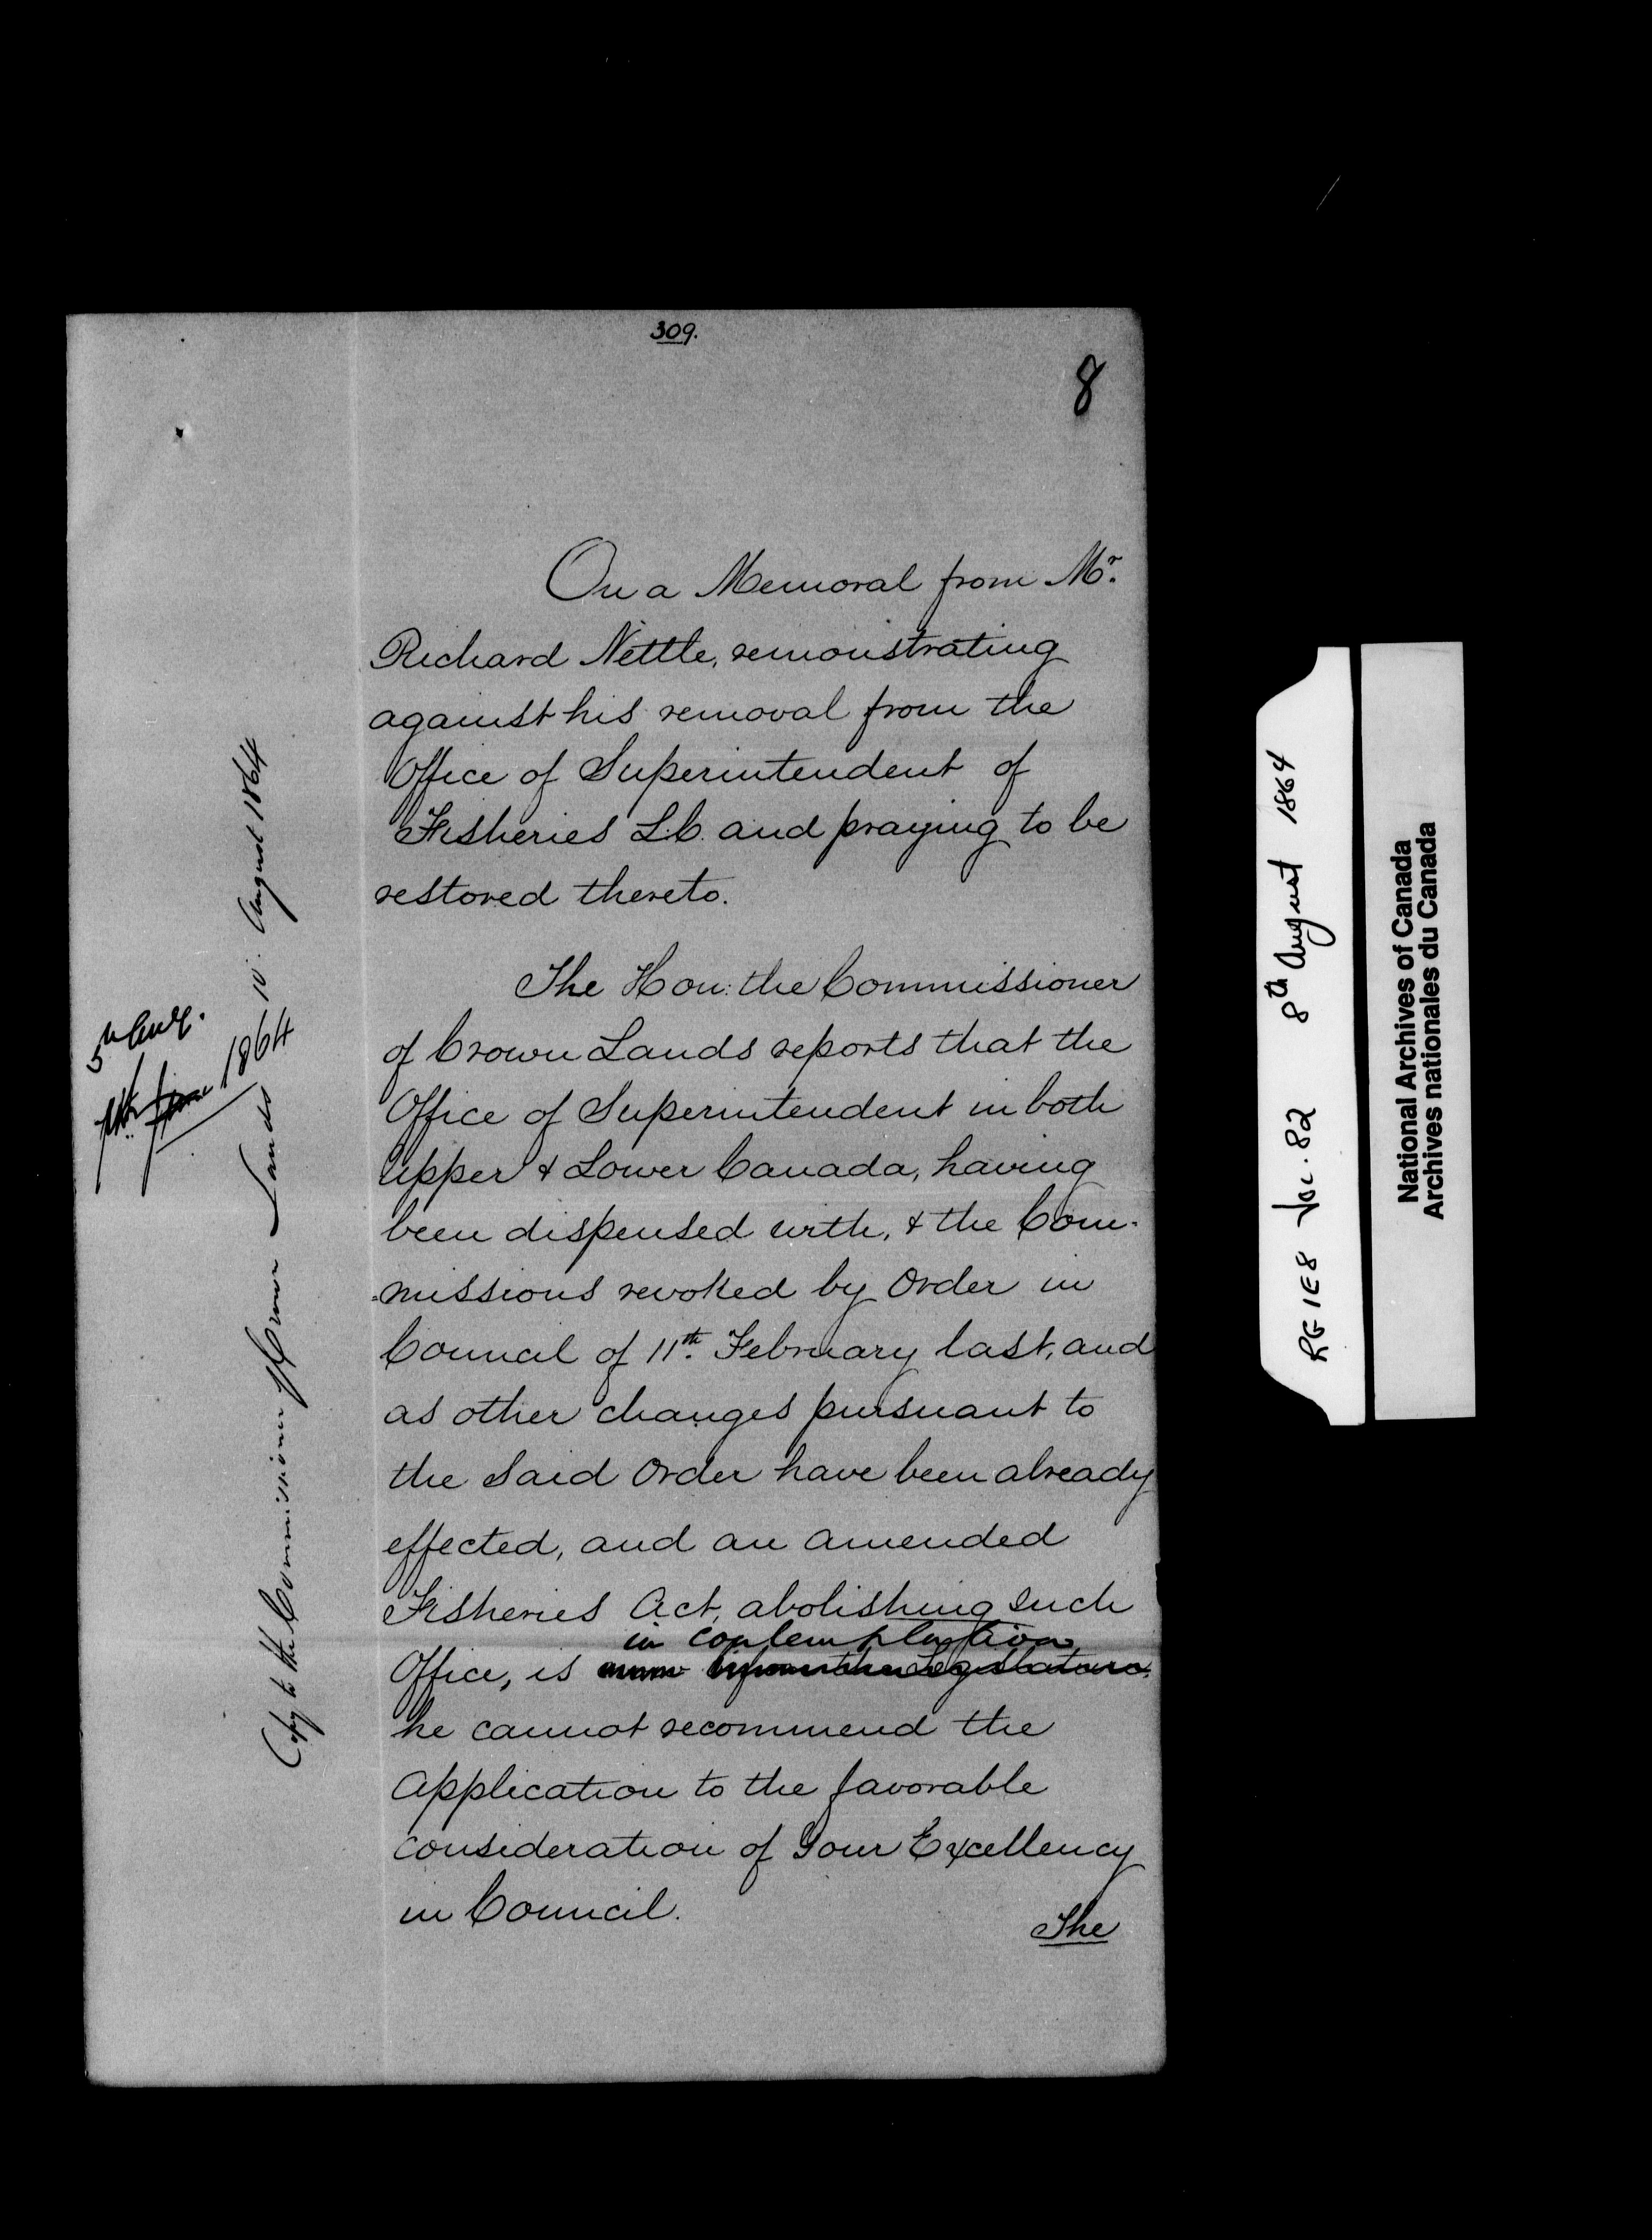 309.
8
On a Memoral from Mr.
Richard Nettle, remonstrating
against his removal from the
Office of Superintendent of
Fisheries L.C. and praying to be
restored thereto.
The Hon: the Commissioner
of Crown Lands reports that the
Office of Superintendent in both
Upper & Lower Canada, having
been dispensed with, & the Com-
=missions revoked by Order in
Council of 11th. February last, and
as other changes pursuant to
the Said Order have been already
effected, and an amended
Fisheries Act, abolishing such
in contemplation
Office, is now before the Legislature.
he cannot recommend the
Application to the favorable
consideration of Your Excellency
in Council.
The
5th Aug.
1864
Copy to the Commissioner of Crown Lands 10. August 1864
RG 1E8 Vol. 82 8th August 1864
National Archives of Canada
Archives nationales du Canada